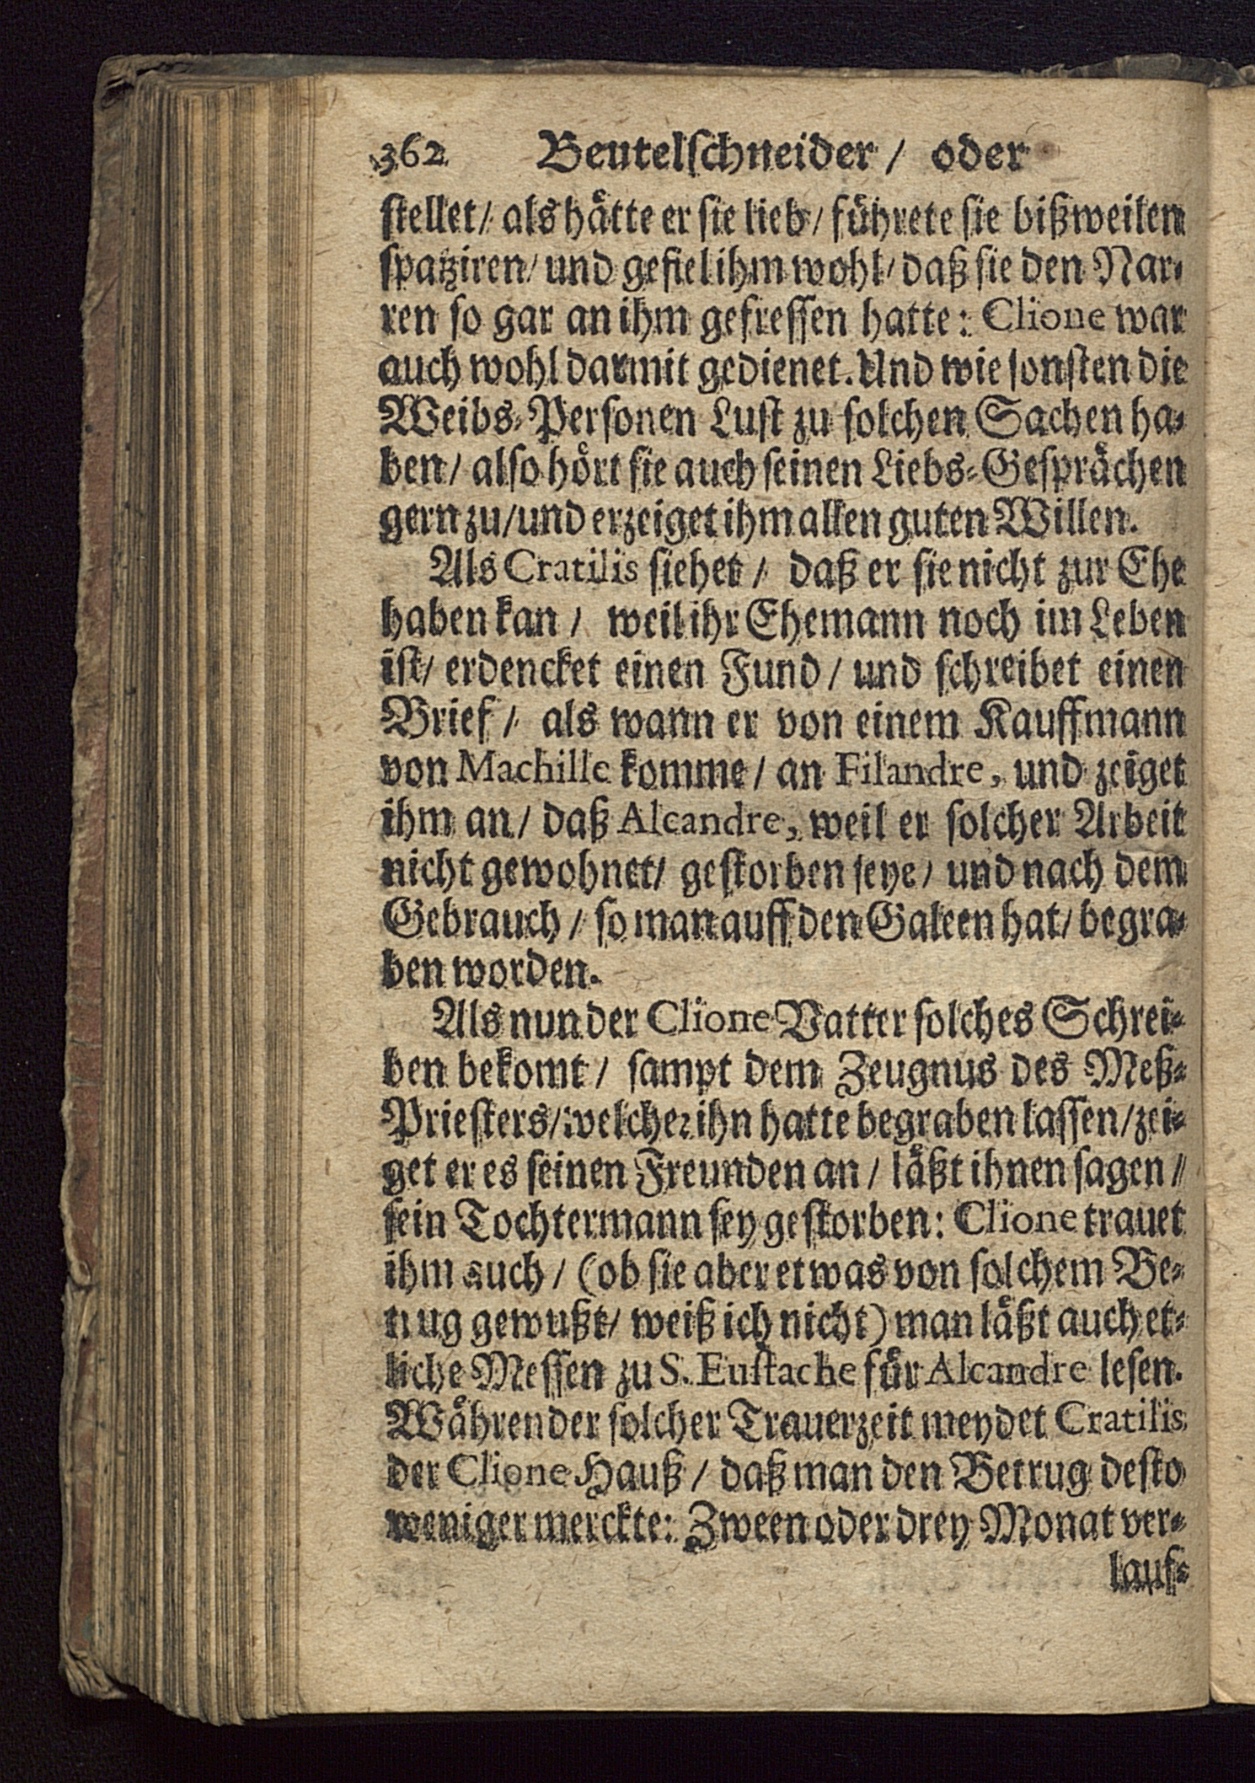 362 Beutelschneider / oder
stellet / als hätte er sie lieb / führete sie bißweilen
spatziren / und gefiel ihm wohl / daß sie den Nar-
ren so gar an ihm gefressen hatte: Clione war
auch wohl darmit gedienet. Und wie sonsten die
Weibs-Personen Lust zu solchen Sachen ha-
ben / also hört sie auch seinen Liebs-Gesprächen
gern zu / und erzeiget ihm allen guten Willen.
Als Cratilis siehet / daß er sie nicht zur Ehe
haben kan / weil ihr Ehemann noch im Leben
ist / erdencket einen Fund / und schreibet einen
Brief / als wann er von einem Kauffmann
von Machille komme / an Filandre, und zeiget
ihm an / daß Alcandre, weil er solcher Arbeit
nicht gewohnet / gestorben seye / und nach dem
Gebrauch / so man auff den Galeen hat / begra-
ben worden.
Als nun der Clione Vatter solches Schrei-
ben bekomt / sampt dem Zeugnus des Meß-
Priesters / welcher ihn hatte begraben lassen / zei-
get er es seinen Freunden an / läßt ihnen sagen /
sein Tochtermann sey gestorben: Clione trauet
ihm auch / (ob sie aber etwas von solchem Be-
nug gewußt / weiß ich nicht) man läßt auch et-
liche Messen zu S. Eustache für Alcandre lesen.
Währender solcher Trauerzeit meydet Cratilis
der Clione Hauß / daß man den Betrug desto
weniger merckte: Zween oder drey Monat ver-
lauf-